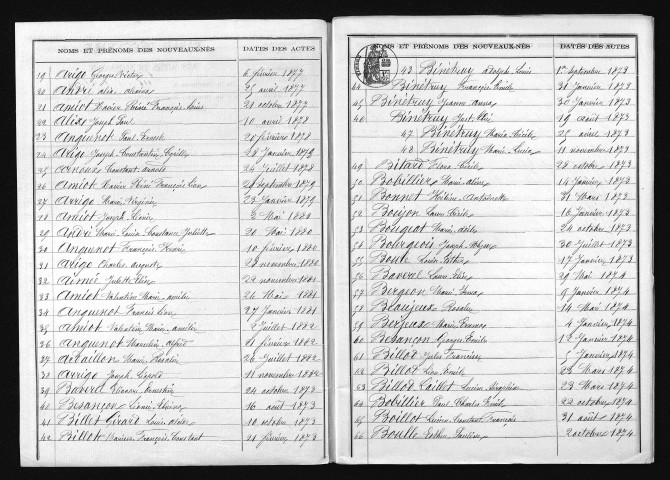 NOMS ET PRÉNOMS DES NOUVEAUX-NÉS DATES DES ACTES
19 Arigo Georges Victor 6 février 1877
20 André 25 avril 1877
21 Amiot Xavier Réné François 21 octobre 1877
22 Alix Joseph Paul 10 avril 1878
23 Anguenot Paul 21 février 1878
24 Arigo Joseph Constantin Cyrille 28 Janvier 1879
25 Arnoux Constant 24 Juillet 1878
26 Amiot Xavier Réné François Léon 21 Septembre 1879
27 Arrigo Marie Virginie 23 Janvier 1879
28 Amiot Joseph 2 Mai 1880
29 André Marie Louis Constance 20 Mai 1880
30 Anguenot François 10 février 1880
31 Arigo Charles Auguste 29 novembre 1880
32 Aimée Juliette 29 novembre 1881
33 Amiot Valentin Marie 26 Mai 1881
34 Anguenot Francis Léon 27 Janvier 1881
35 Amiot Valentin Marie 2 Juillet 1882
36 Anguenot Marcelin Alfred 21 février 1882
37 Marie 26 Juillet 1882
38 Arrigo Joseph Léopold 11 novembre 1882
39 Baverel 24 octobre 1873
40 Besançon 16 août 1873
41 Billet Girard Louis 10 octobre 1873
42 Billot François Constant 21 février 1873
NOMS ET PRÉNOMS DES NOUVEAUX-NÉS DATES DES ACTES
43 Bénétruy Adolphe Louis 1er Septembre 1873
44 Bénétruy François Emile 31 Janvier 1873
45 Bénétruy Jeanne Anna 30 Janvier 1873
46 Bénétruy Just 19 août 1873
47 Bénétruy Marie 25 avril 1873
48 Bénétruy Marie Lucie 11 novembre 1873
49 Bitard 28 octobre 1873
50 Bobillier Marie 14 Janvier 1873
51 Bonnet Antoinette 31 Mars 1873
52 Boujon 16 Janvier 1873
53 Bougeot Marie 24 octobre 1873
54 Bourgeois Joseph 30 Juillet 1873
55 Boute Louise Esther 17 Janvier 1873
56 Baverel 29 Mai 1874
57 Bergeon Marie 9 Janvier 1874
58 Beaujeux Rosalie 14 Mai 1874
59 Berjeux Marie 4 Janvier 1874
60 Besançon Georges Emile 12 Janvier 1874
61 Billot Jules Francis 5 Janvier 1874
62 Billot Léon Emile 28 Mars 1874
63 Billot Laillet Lucien 23 Mars 1874
64 Bobillier Paul Charles Emile 22 octobre 1874
65 Boillot Constant François 31 août 1874
66 Boulle Esther Pauline 2 octobre 1874